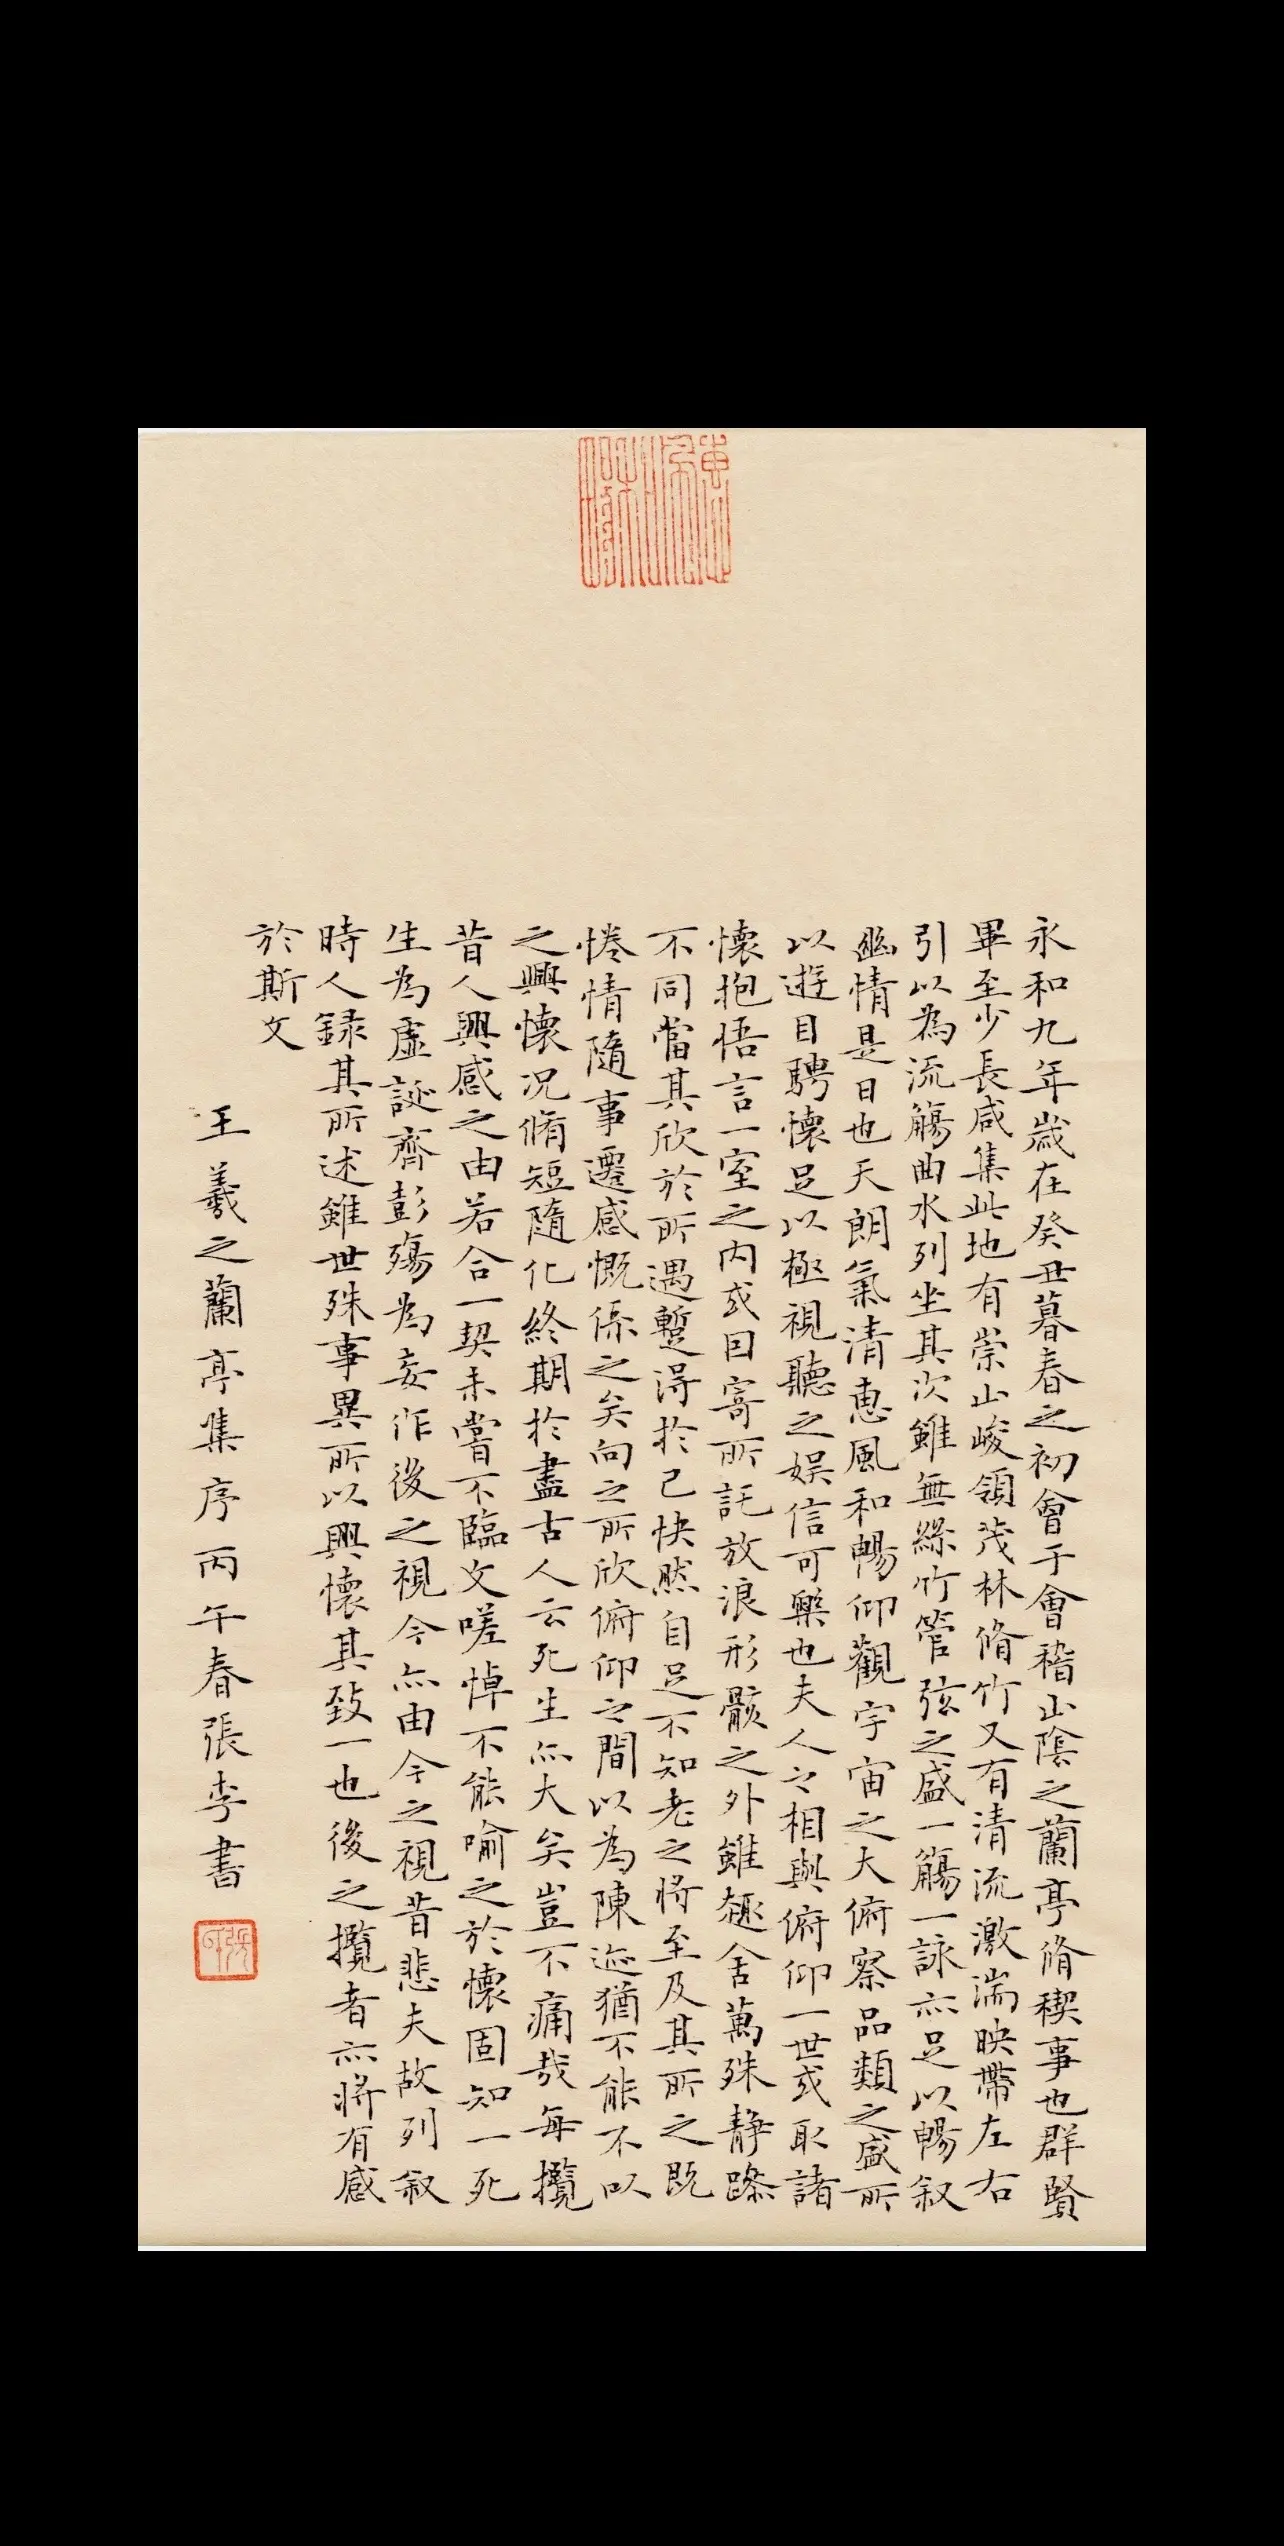 永和九年歲在癸丑暮春之初會于會稽山陰之蘭亭脩稧事也群賢
畢至少長咸集此地有崇山峻領茂林脩竹又有清流激湍映帶左右
引以為流觴曲水列坐其次雖無絲竹管弦之盛一觴一詠亦足以暢叙
幽情是日也天朗氣清惠風和暢仰觀宇宙之大俯察品類之盛所
以遊目騁懷足以極視聽之娛信可樂也夫人之相與俯仰一世或取諸
懷抱悟言一室之內或因寄所託放浪形骸之外雖趣舍萬殊靜躁
不同當其欣於所遇蹔得於己快然自足不知老之將至及其所之既
惓情隨事遷感慨係之矣向之所欣俯仰之間以為陳迹猶不能不以
之興懷況脩短隨化終期於盡古人云死生亦大矣豈不痛哉每攬
昔人興感之由若合一契未嘗不臨文嗟悼不能喻之於懷固知一死
生為虛誕齊彭殤為妄作後之視今亦由今之視昔悲夫故列叙
時人録其所述雖世殊事異所以興懷其致一也後之攬者亦將有感
於斯文
王羲之蘭亭集序丙午春張李書